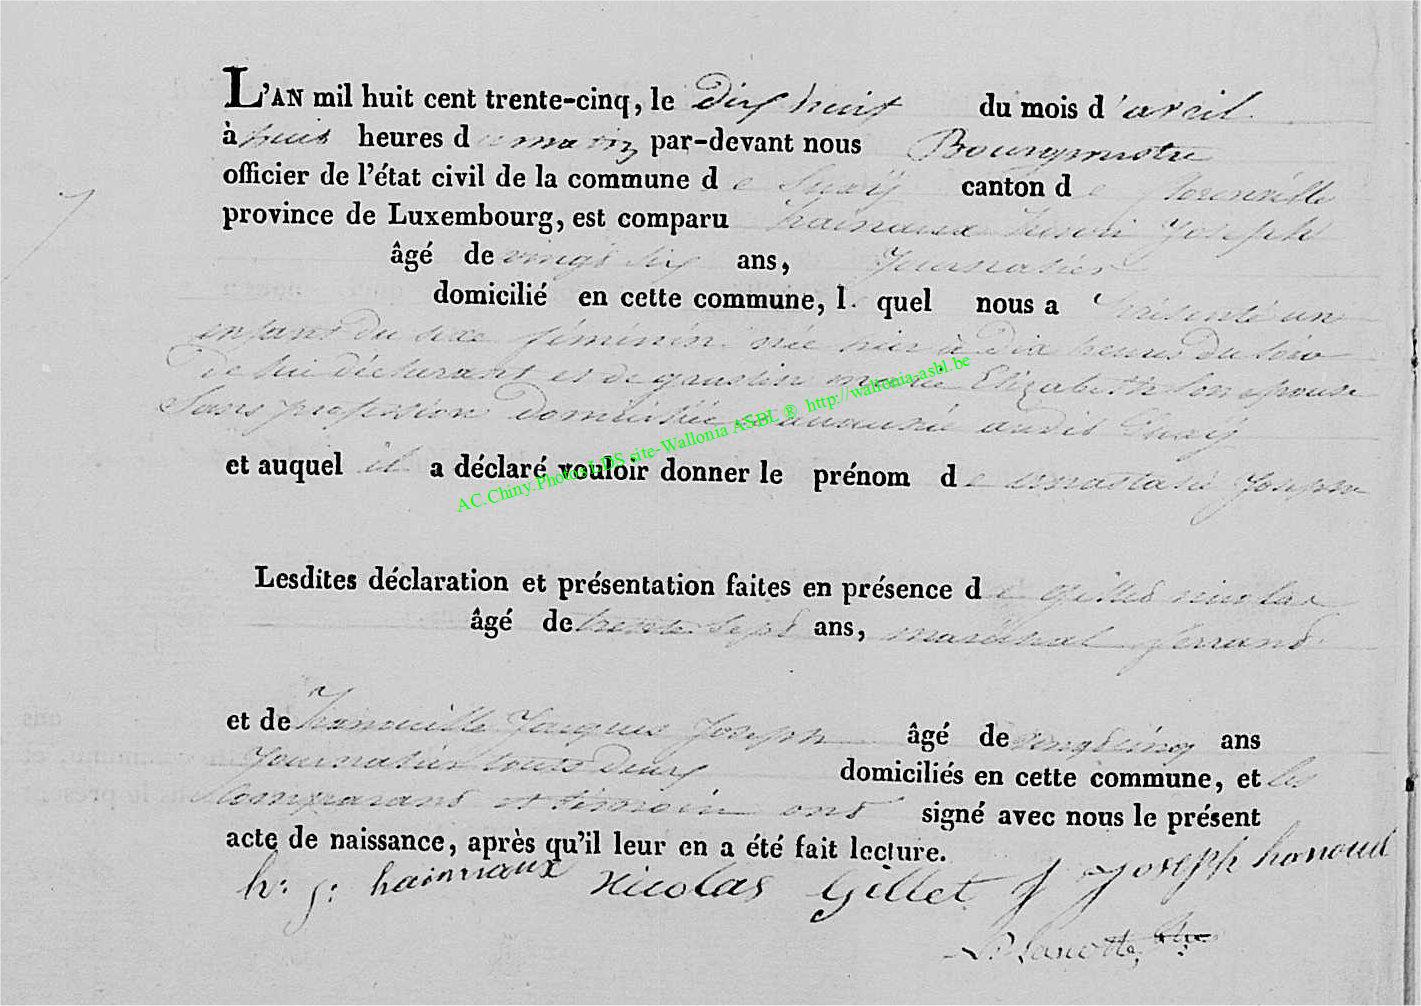 L'AN mil huit cent trente-cinq, le Dix huit du mois d'avril
à huit heures du matin par-devant nous Bourgmestre
officier de l'état civil de la commune de Suxÿ canton de
province de Luxembourg, est comparu hainaux henri Joseph
âgé de vingt six ans, Journalier
domicilié en cette commune, l. quel nous a présenté un
enfant du sexe féminin née hier à Dix heures du soir
De lui déclarant et de Elizabeth son épouse
sans profession Domiciliée audit Suxÿ
et auquel il a déclaré vouloir donner le prénom de Joseph
AC.Chiny.Photos LDS site-Wallonia ASBL ® http://wallonia-asbl.be
Lesdites déclaration et présentation faites en présence de nicolas
âgé de trente sept ans, maréchal ferrand
et de Jacques Joseph âgé de vingt cinq ans
Journalier touts Deux domiciliés en cette commune, et les
comparans et témoin ont signé avec nous le présent
acte de naissance, après qu'il leur en a été fait lecture.
h: j: hainnaux Nicolas Gillet J Joseph